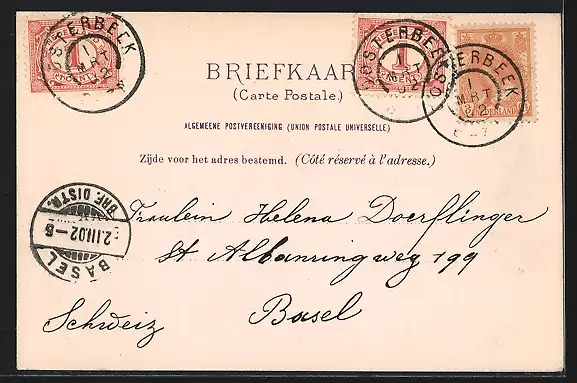 OOSTERBEEK
1
MRT
02
OOSTERBEEK
1
MRT
02
OOSTERBEEK
1
MRT
02
1
CENT
1
CENT
NEDERLAND
BRIEFKAAR
(Carte Postale.)
ALGEMEENE POSTVEREENIGING (UNION POSTALE UNIVERSELLE)
Zijde voor het adres bestemd. (Côté réservé à l'adresse.)
BRF. DISTR.
2.III.02-8
BASEL
Fraulein Helena Doerflinger
St Albanringweg 199
Basel
Schweiz